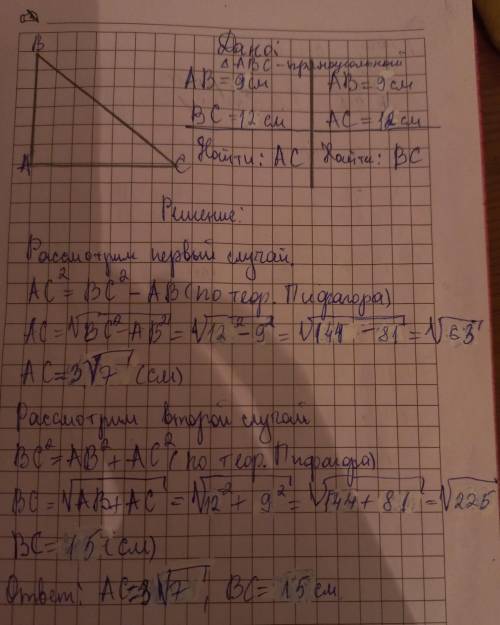 B
Дано:
Δ ABC - прямоугольный
AB = 9 см
AB = 9 см
BC = 12 см
AC = 12 см
A
C
Найти: AC
Найти: BC
Решение:
Рассмотрим первый случай.
AC² = BC² - AB (по теор. Пифагора)
AC = √BC² - AB² = √12² - 9² = √144 - 81 = √63
AC = 3√7 (см)
Рассмотрим второй случай
BC² = AB² + AC² (по теор. Пифагора)
BC = √AB + AC = √12² + 9² = √144 + 81 = √225
BC = 15 (см)
Ответ: AC = 3√7, BC = 15 см